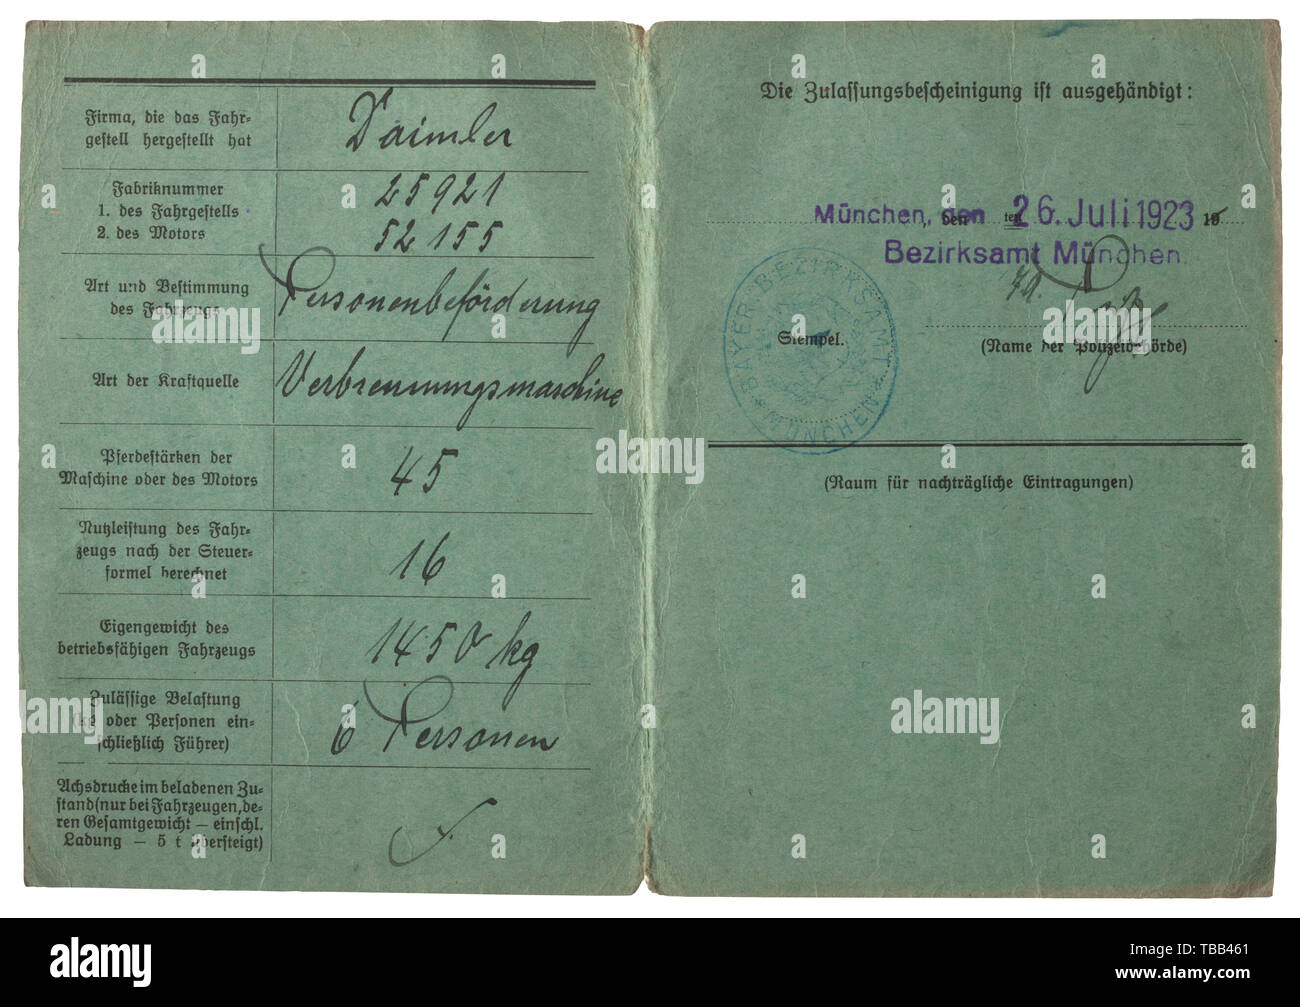 Firma, die das Fahr-
gestell hergestellt hat
Daimler
Fabriknummer
1. des Fahrgestells
2. des Motors
25921
52155
Art und Bestimmung
des Fahrzeugs
Personenbeförderung
Art der Kraftquelle
Verbrennungsmaschine
Pferdestärken der
Maschine oder des Motors
45
Nutzleistung des Fahr-
zeugs nach der Steuer-
formel berechnet
16
Eigengewicht des
betriebsfähigen Fahrzeugs
1450 kg
Zulässige Belastung
(kg oder Personen ein-
schließlich Führer)
6 Personen
Achsdrucke im beladenen Zu-
stand (nur bei Fahrzeugen, de-
ren Gesamtgewicht – einschl.
Ladung – 5 t übersteigt)
Die Zulassungsbescheinigung ist ausgehändigt:
München, den 26. Juli 1923
, den ten 19
Bezirksamt München.
BAYER. BEZIRKSAMT
MÜNCHEN
Stempel.
(Name der Polizeibehörde)
(Raum für nachträgliche Eintragungen)
alamy
alamy
alamy
alamy
alamy
Image ID: TBB461
www.alamy.com